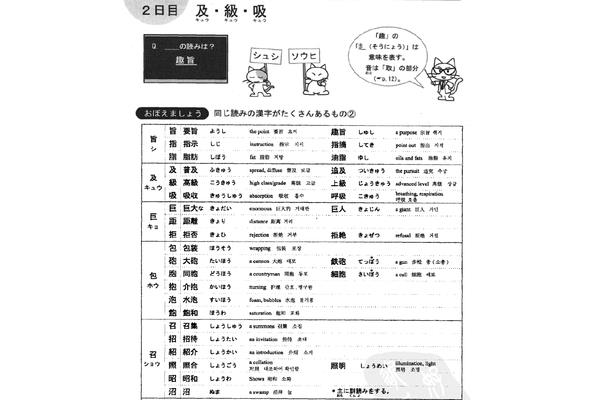 2日目 及・級・吸
キュウ キュウ キュウ
Q ___の読みは？
趣旨
シュシ
ソウヒ
「趣」の
「走（そうにょう）」は
意味を表す。
音は「取」の部分
(☞p.12)。
おぼえましょう 同じ読みの漢字がたくさんあるもの②
旨 シ
旨 要旨 ようし the point 要旨 요지 趣旨 しゅし a purpose 宗旨 취지
指 指示 しじ instruction 指示 지시 指摘 してき point out 指出 지적
脂 脂肪 しぼう fat 脂肪 지방 油脂 ゆし oils and fats 油脂 유지
及 キュウ
及 普及 ふきゅう spread, diffuse 普及 보급 追及 ついきゅう the pursuit 追究 추궁
級 高級 こうきゅう high class/grade 高级 고급 上級 じょうきゅう advanced level 高级 상급
吸 吸収 きゅうしゅう absorption 吸收 흡수 呼吸 こきゅう breathing, respiration 呼吸 호흡
巨 キョ
巨 巨大な きょだい enormous 巨大的 거대한 巨人 きょじん a giant 巨人 거인
距 距離 きょり distance 距离 거리
拒 拒否 きょひ rejection 拒绝 거부 拒絶 きょぜつ refusal 拒绝 거절
包 ホウ
包 包装 ほうそう wrapping 包装 포장
砲 大砲 たいほう a cannon 大炮 대포 鉄砲 てっぽう a gun
胞 同胞 どうほう a countryman 同胞 동포 細胞 さいぼう a cell 细胞 세포
抱 介抱 かいほう nursing 护理
泡 水泡 すいほう foam, bubbles 水泡
飽 飽和 ほうわ saturation 饱和 포화
召 ショウ
召 召集 しょうしゅう a summons 召集 소집
招 招待 しょうたい an invitation 招待 초대
紹 紹介 しょうかい an introduction 介绍 소개
照 照合 しょうごう a collation 照明 しょうめい illumination, light 照明 조명
昭 昭和 しょうわ Showa 昭和 소화
沼 沼 ぬま a swamp 沼泽 늪 *主に訓読みをする。